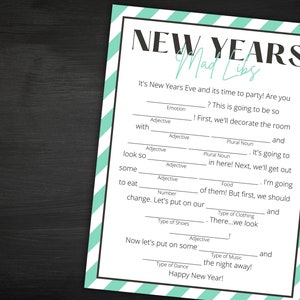 NEW YEARS
Mad Libs
It's New Years Eve and its time to party! Are you
__________ ? This is going to be so
Emotion
__________ ! First, we'll decorate the room
Adjective
with __________ __________ and
Adjective Plural Noun
__________ __________ . It's going to
Adjective Plural Noun
look so __________ in here! Next, we'll get out
Adjective
some __________ __________ . I'm going
Adjective Food
to eat __________ of them! But first, we should
Number
change. Let's put on our __________ and
Type of Clothing
__________ . There...we look
Type of Shoes
__________ !
Adjective
Now let's put on some __________ and
Type of Music
__________ the night away!
Type of Dance
Happy New Year!